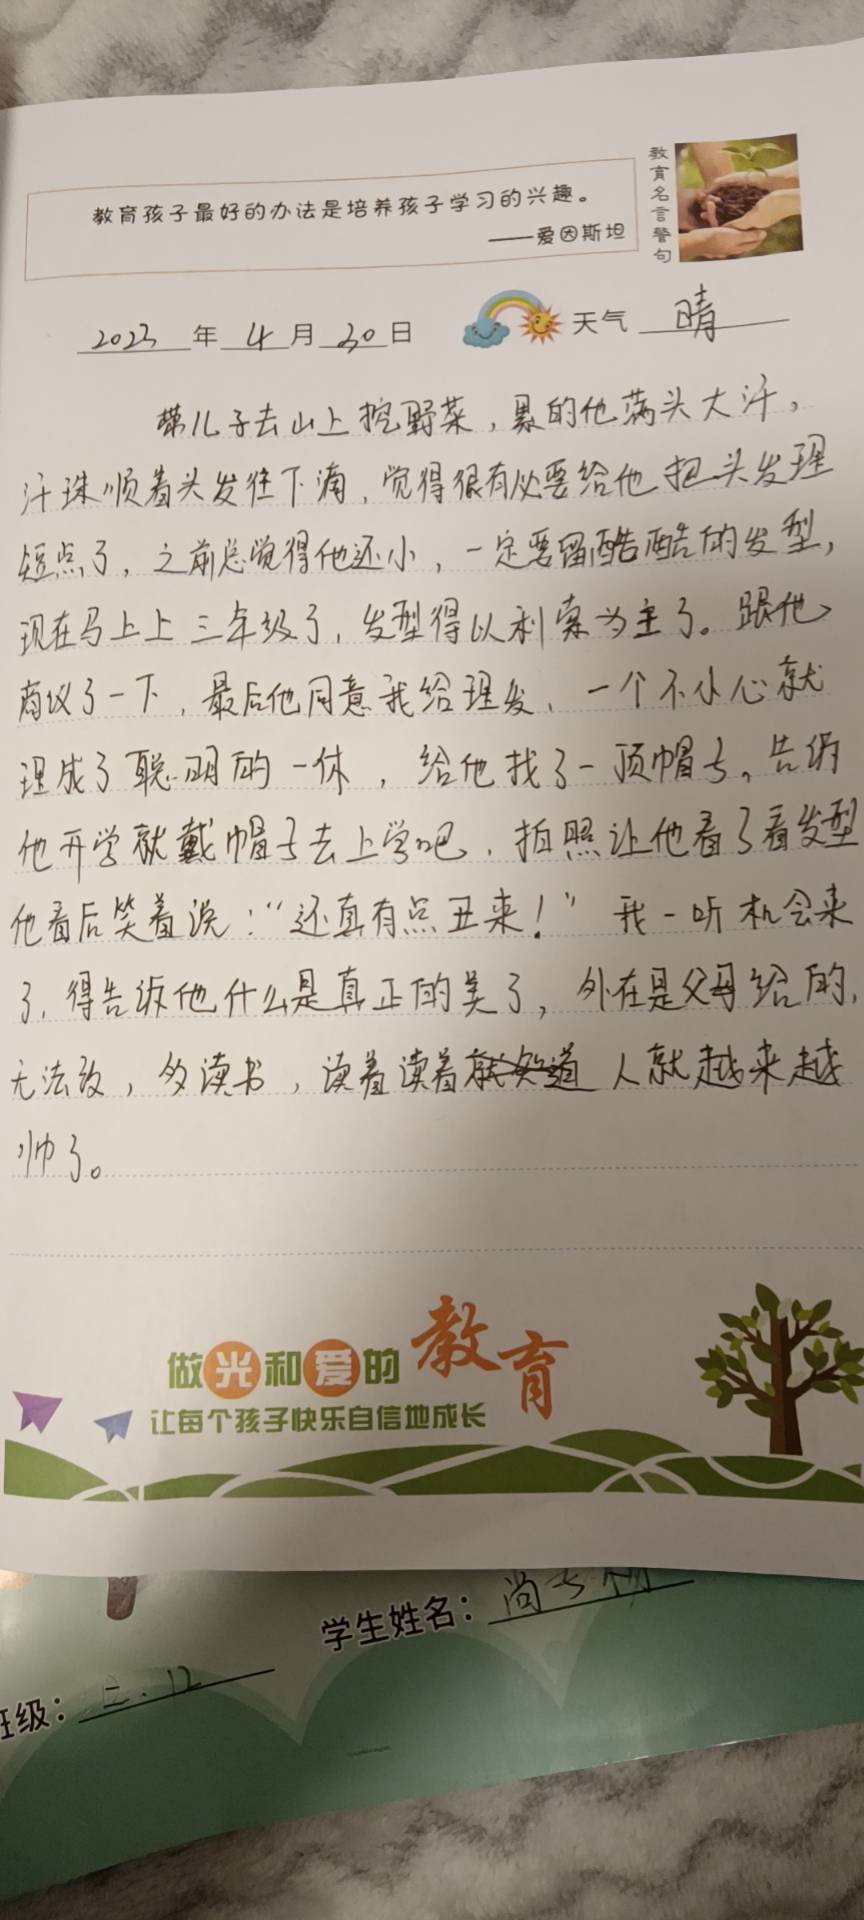 教育名言警句
教育孩子最好的办法是培养孩子学习的兴趣。
——爱因斯坦
2023年4月30日 天气 晴
带儿子去山上挖野菜，累的他满头大汗，
汗珠顺着头发往下滴，觉得很有必要给他把头发理
短点了，之前总觉得他还小，一定要留酷酷的发型，
现在马上上三年级了，发型得以利索为主了。跟他
商议了一下，最后他同意我给理发，一个不小心就
理成了聪明的一休，给他找了一顶帽子，告诉
他开学就戴帽子去上学吧，拍照让他看了看发型
他看后笑着说：“还真有点丑来！”我一听机会来
了，得告诉他什么是真正的美了，外在是父母给的，
无法改，多读书，读着读着 人就越来越
帅了。
做光和爱的教育
让每个孩子快乐自信地成长
学生姓名：尚
班级：二.12